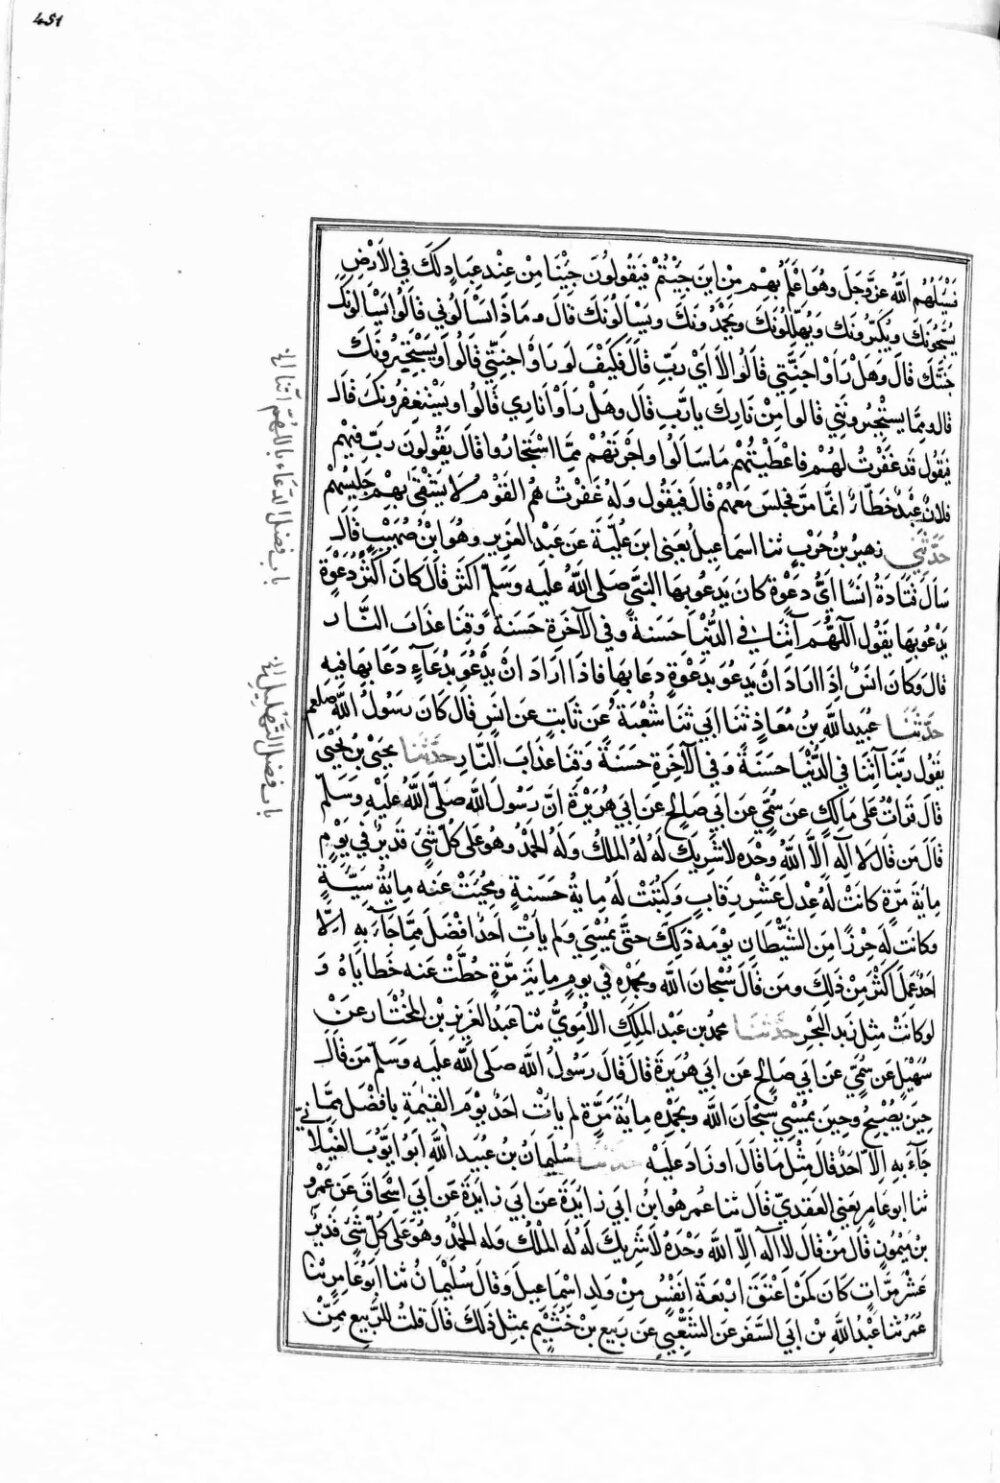 451
فيسئلهم الله عز وجل وهو اعلم بهم من اين جئتم فيقولون جئنا من عند عباد لك في الارض
يسبحونك ويكبرونك ويهللونك ويحمدونك ويسالونك قال وماذا يسالوني قالوا يسالونك
جنتك قال وهل راوا جنتي قالوا لا اي رب قال فكيف لو راوا جنتي قالوا ويستجيرونك
قال ومما يستجيرونني قالوا من نارك يا رب قال وهل راوا ناري قالوا ويستغفرونك قال
فيقول قد غفرت لهم فاعطيتهم ما سالوا واجرتهم مما استجاروا قال يقولون رب فيهم
فلان عبد خطاء انما مر فجلس معهم قال فيقول وله غفرت هم القوم لا يشقى بهم جليسهم
حدثني زهير بن حرب ثنا اسماعيل يعني ابن علية عن عبد العزيز وهو ابن صهيب قال
سال قتادة انسا اي دعوة كان يدعو بها النبي صلى الله عليه وسلم اكثر قال كان اكثر دعوة
يدعو بها يقول اللهم آتنا في الدنيا حسنة وفي الآخرة حسنة وقنا عذاب النار
قال وكان انس اذا اراد ان يدعو بدعوة دعا بها فاذا اراد ان يدعو بدعاء دعا بها فيه
حدثنا عبيد الله بن معاذ ثنا ابي ثنا شعبة عن ثابت عن انس قال كان رسول الله صلعم
يقول ربنا آتنا في الدنيا حسنة وفي الآخرة حسنة وقنا عذاب النار حدثنا يحيى بن يحيى
قال قرات على مالك عن سمي عن ابي صالح عن ابي هريرة ان رسول الله صلى الله عليه وسلم
قال من قال لا اله الا الله وحده لا شريك له له الملك وله الحمد وهو على كل شئ قدير في يوم
ماية مرة كانت له عدل عشر رقاب وكتبت له ماية حسنة ومحيت عنه ماية سيئة
وكانت له حرزا من الشيطان يومه ذلك حتى يمسي ولم يات احد افضل مما جاء به الا
احد عمل اكثر من ذلك ومن قال سبحان الله وبحمده في يوم ماية مرة حطت عنه خطاياه و
لو كانت مثل زبد البحر حدثنا محمد بن عبد الملك الاموي ثنا عبد العزيز بن المختار عن
سهيل عن سمي عن ابي صالح عن ابي هريرة قال قال رسول الله صلى الله عليه وسلم من قال
حين يصبح وحين يمسي سبحان الله وبحمده ماية مرة لم يات احد يوم القيمة بافضل مما
جاء به الا احد قال مثل ما قال او زاد عليه حدثنا سليمان بن عبيد الله ابو ايوب الغيلاني
ثنا ابو عامر يعني العقدي قال ثنا عمر هو ابن ابي زايدة عن ابي اسحاق عن عمرو
بن ميمون قال من قال لا اله الا الله وحده لا شريك له له الملك وله الحمد وهو على كل شئ قدير
عشر مرات كان كمن اعتق اربعة انفس من ولد اسماعيل وقال سليمان ثنا ابو عامر ثنا
عمر ثنا عبد الله بن ابي السفر عن الشعبي عن ربيع بن خثيم بمثل ذلك قال قلت للربيع ممن
باب فضل الدعاء باللهم آتنا الخ
باب فضل التهليل الخ